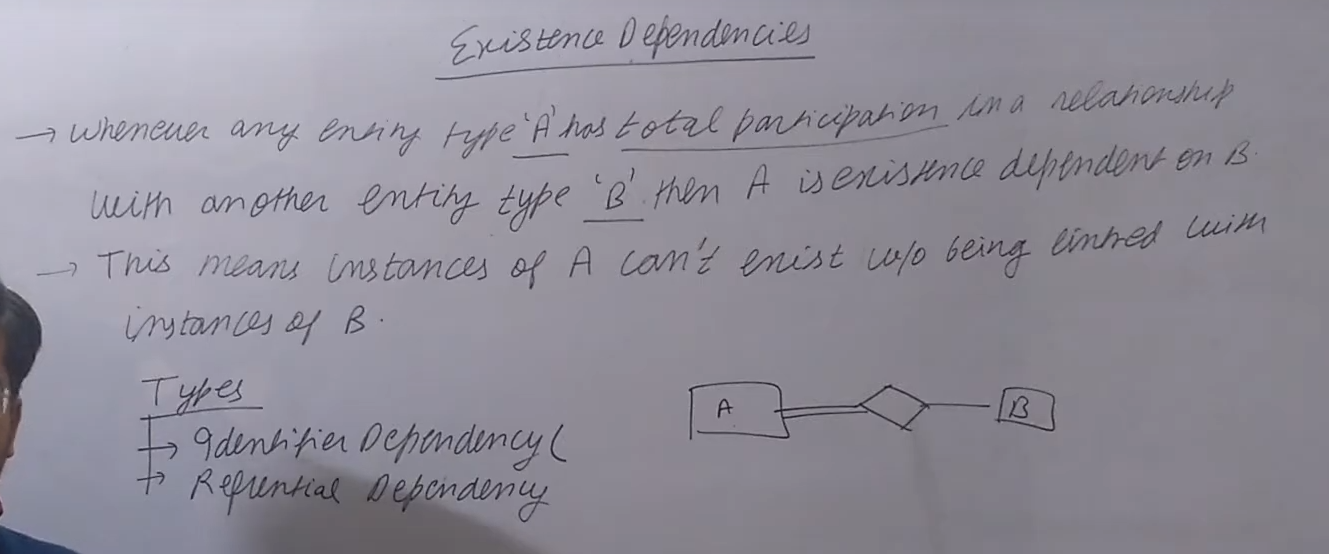 Existence Dependencies
→ Whenever any entity type 'A' has total participation in a relationship
with another entity type 'B' then A is existence dependent on B.
→ This means instances of A can't exist w/o being linked with
instances of B.
Types
→ Identifier Dependency (
→ Refrential Dependency
A
B